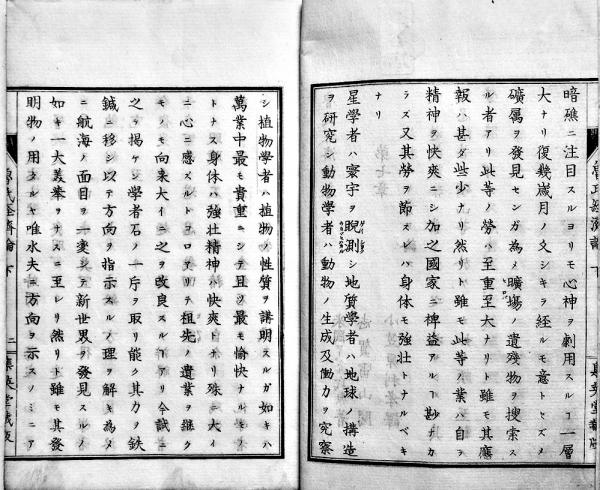 暗礁ニ注目スルヨリモ心神ヲ劇用スルヿ一層
大ナリ復幾歳月ノ久シキヲ経ルモ意トセズメ
礦属ヲ發見センガ為メ曠塲ノ遺殘物ヲ搜索ス
ル者アリ此等ノ勞ハ至重至大ナリト雖モ其應
報ハ甚ダ些少ナリ然リト雖モ此等ノ業ハ自ラ
精神ヲ快爽ニシ加之國家ニ裨益アルヿ尠ナカ
ラズ又其勞ヲ節スレハ身体モ強壮トナルベキ
ナリ
星學者ハ寰宇ヲ睨測シ地質學者ハ地球ノ構造
ヲ研究シ動物學者ハ動物ノ生成及働カヲ究察
シ植物學者ハ植物ノ性質ヲ講明スルガ如キハ
萬業中最モ貴重ニシテ且ツ最モ愉快ナルモノ
トナス身体ハ強壮精神ハ快爽トナリ殊ニ大イ
ニ心ニ感ズルトコロアリテ祖先ノ遺業ヲ継グ
モノノモ向来大イニ之ヲ改良スルヿアリ今試ニ
之ヲ揭ケン學者石ノ一片ヲ取リ能ク其力ヲ鉄
鍼ニ移シ以テ方向ヲ指示スルノ理ヲ解キ為メ
ニ航海ノ面目ヲ一変シテ新世界ヲ發見スルノ
如キ一大美擧ヲナスニ至レリ然リト雖モ其發
明物ノ用タルヤ唯水夫ニ方向ヲ示スノミニア
氏經濟論 下
二
集英堂蔵版